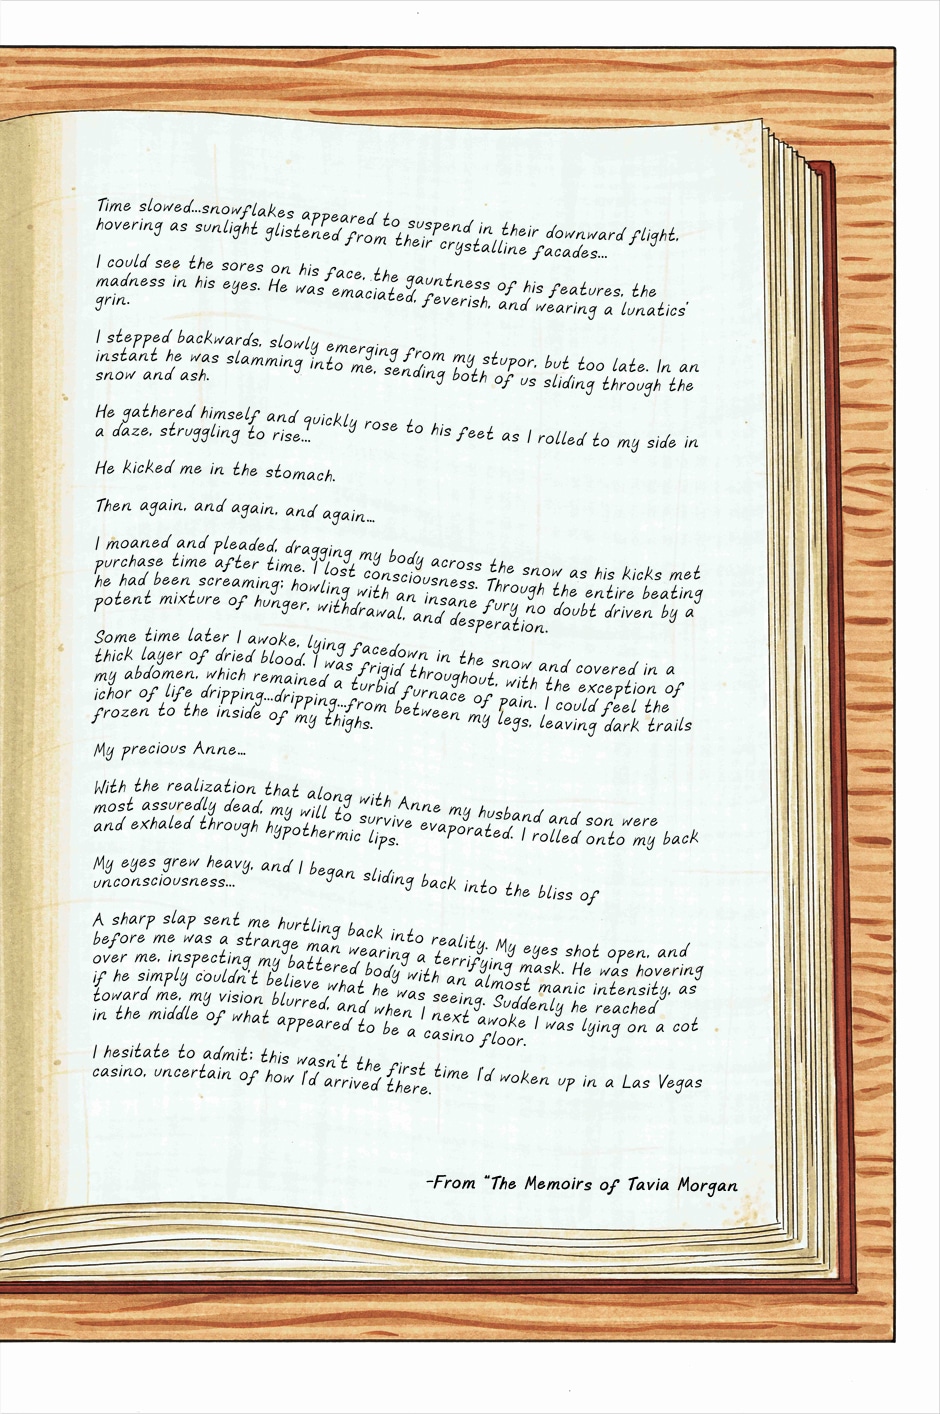 Time slowed...snowflakes appeared to suspend in their downward flight,
hovering as sunlight glistened from their crystalline facades...
I could see the sores on his face, the gauntness of his features, the
madness in his eyes. He was emaciated, feverish, and wearing a lunatics'
grin.
I stepped backwards, slowly emerging from my stupor, but too late. In an
instant he was slamming into me, sending both of us sliding through the
snow and ash.
He gathered himself and quickly rose to his feet as I rolled to my side in
a daze, struggling to rise...
He kicked me in the stomach.
Then again, and again, and again...
I moaned and pleaded, dragging my body across the snow as his kicks met
purchase time after time. I lost consciousness. Through the entire beating
he had been screaming; howling with an insane fury no doubt driven by a
potent mixture of hunger, withdrawal, and desperation.
Some time later I awoke, lying facedown in the snow and covered in a
thick layer of dried blood. I was frigid throughout, with the exception of
my abdomen, which remained a turbid furnace of pain. I could feel the
ichor of life dripping...dripping...from between my legs, leaving dark trails
frozen to the inside of my thighs.
My precious Anne...
With the realization that along with Anne my husband and son were
most assuredly dead, my will to survive evaporated. I rolled onto my back
and exhaled through hypothermic lips.
My eyes grew heavy, and I began sliding back into the bliss of
unconsciousness...
A sharp slap sent me hurtling back into reality. My eyes shot open, and
before me was a strange man wearing a terrifying mask. He was hovering
over me, inspecting my battered body with an almost manic intensity, as
if he simply couldn't believe what he was seeing. Suddenly he reached
toward me, my vision blurred, and when I next awoke I was lying on a cot
in the middle of what appeared to be a casino floor.
I hesitate to admit; this wasn't the first time I'd woken up in a Las Vegas
casino, uncertain of how I'd arrived there.
-From "The Memoirs of Tavia Morgan